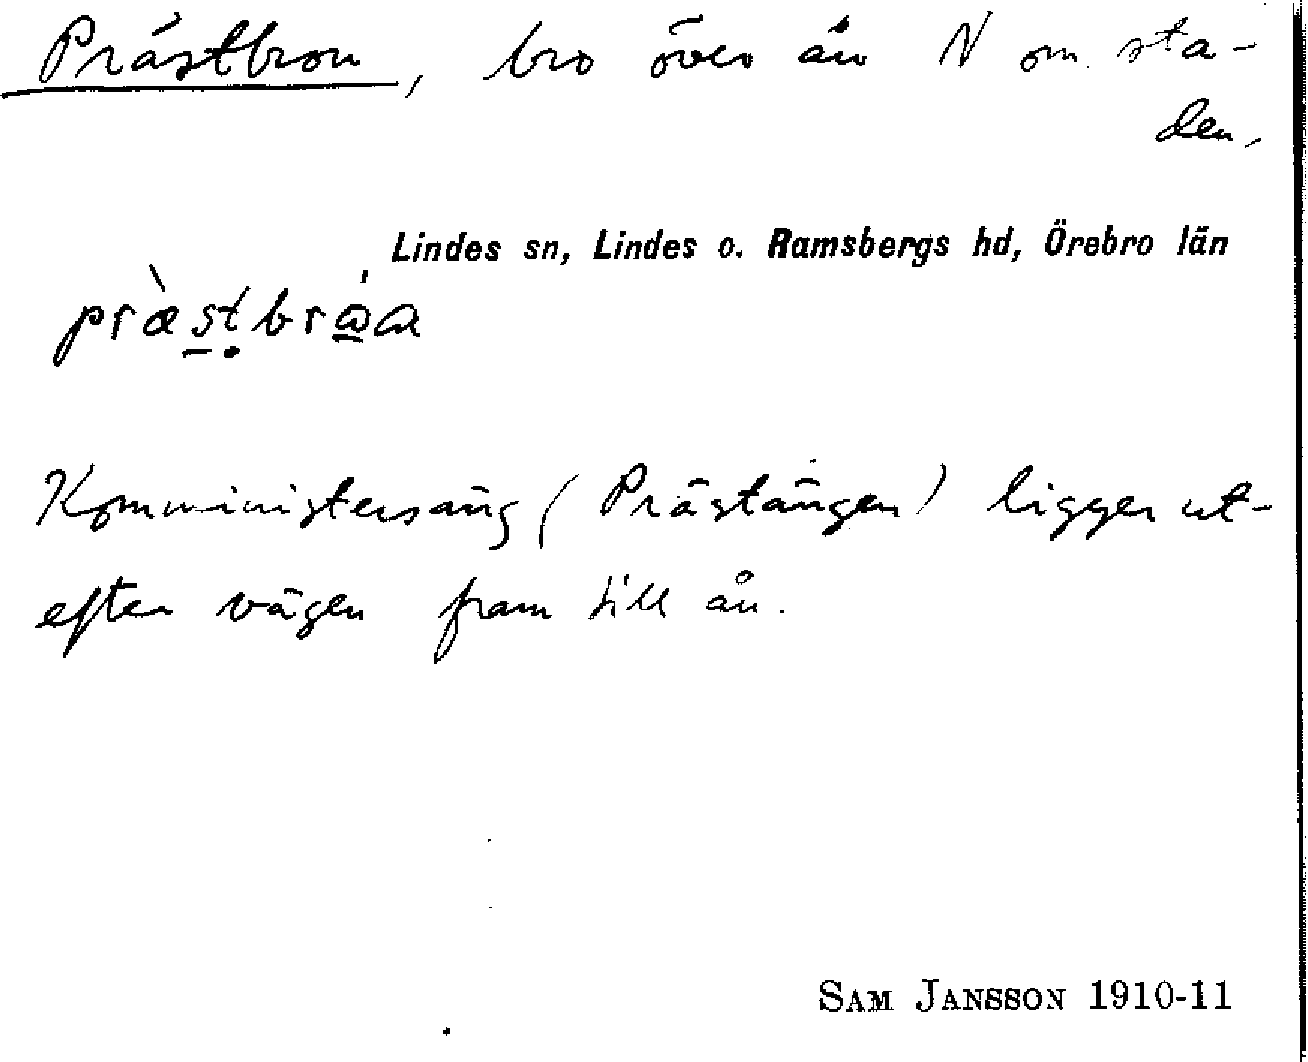 Prästbron, bro över ån N om sta-
den.
Lindes sn, Lindes o. Ramsbergs hd, Örebro län
Kommunistersäng (Prästängen) ligger ut-
efter vägen fram till ån.
SAM JANSSON 1910-11